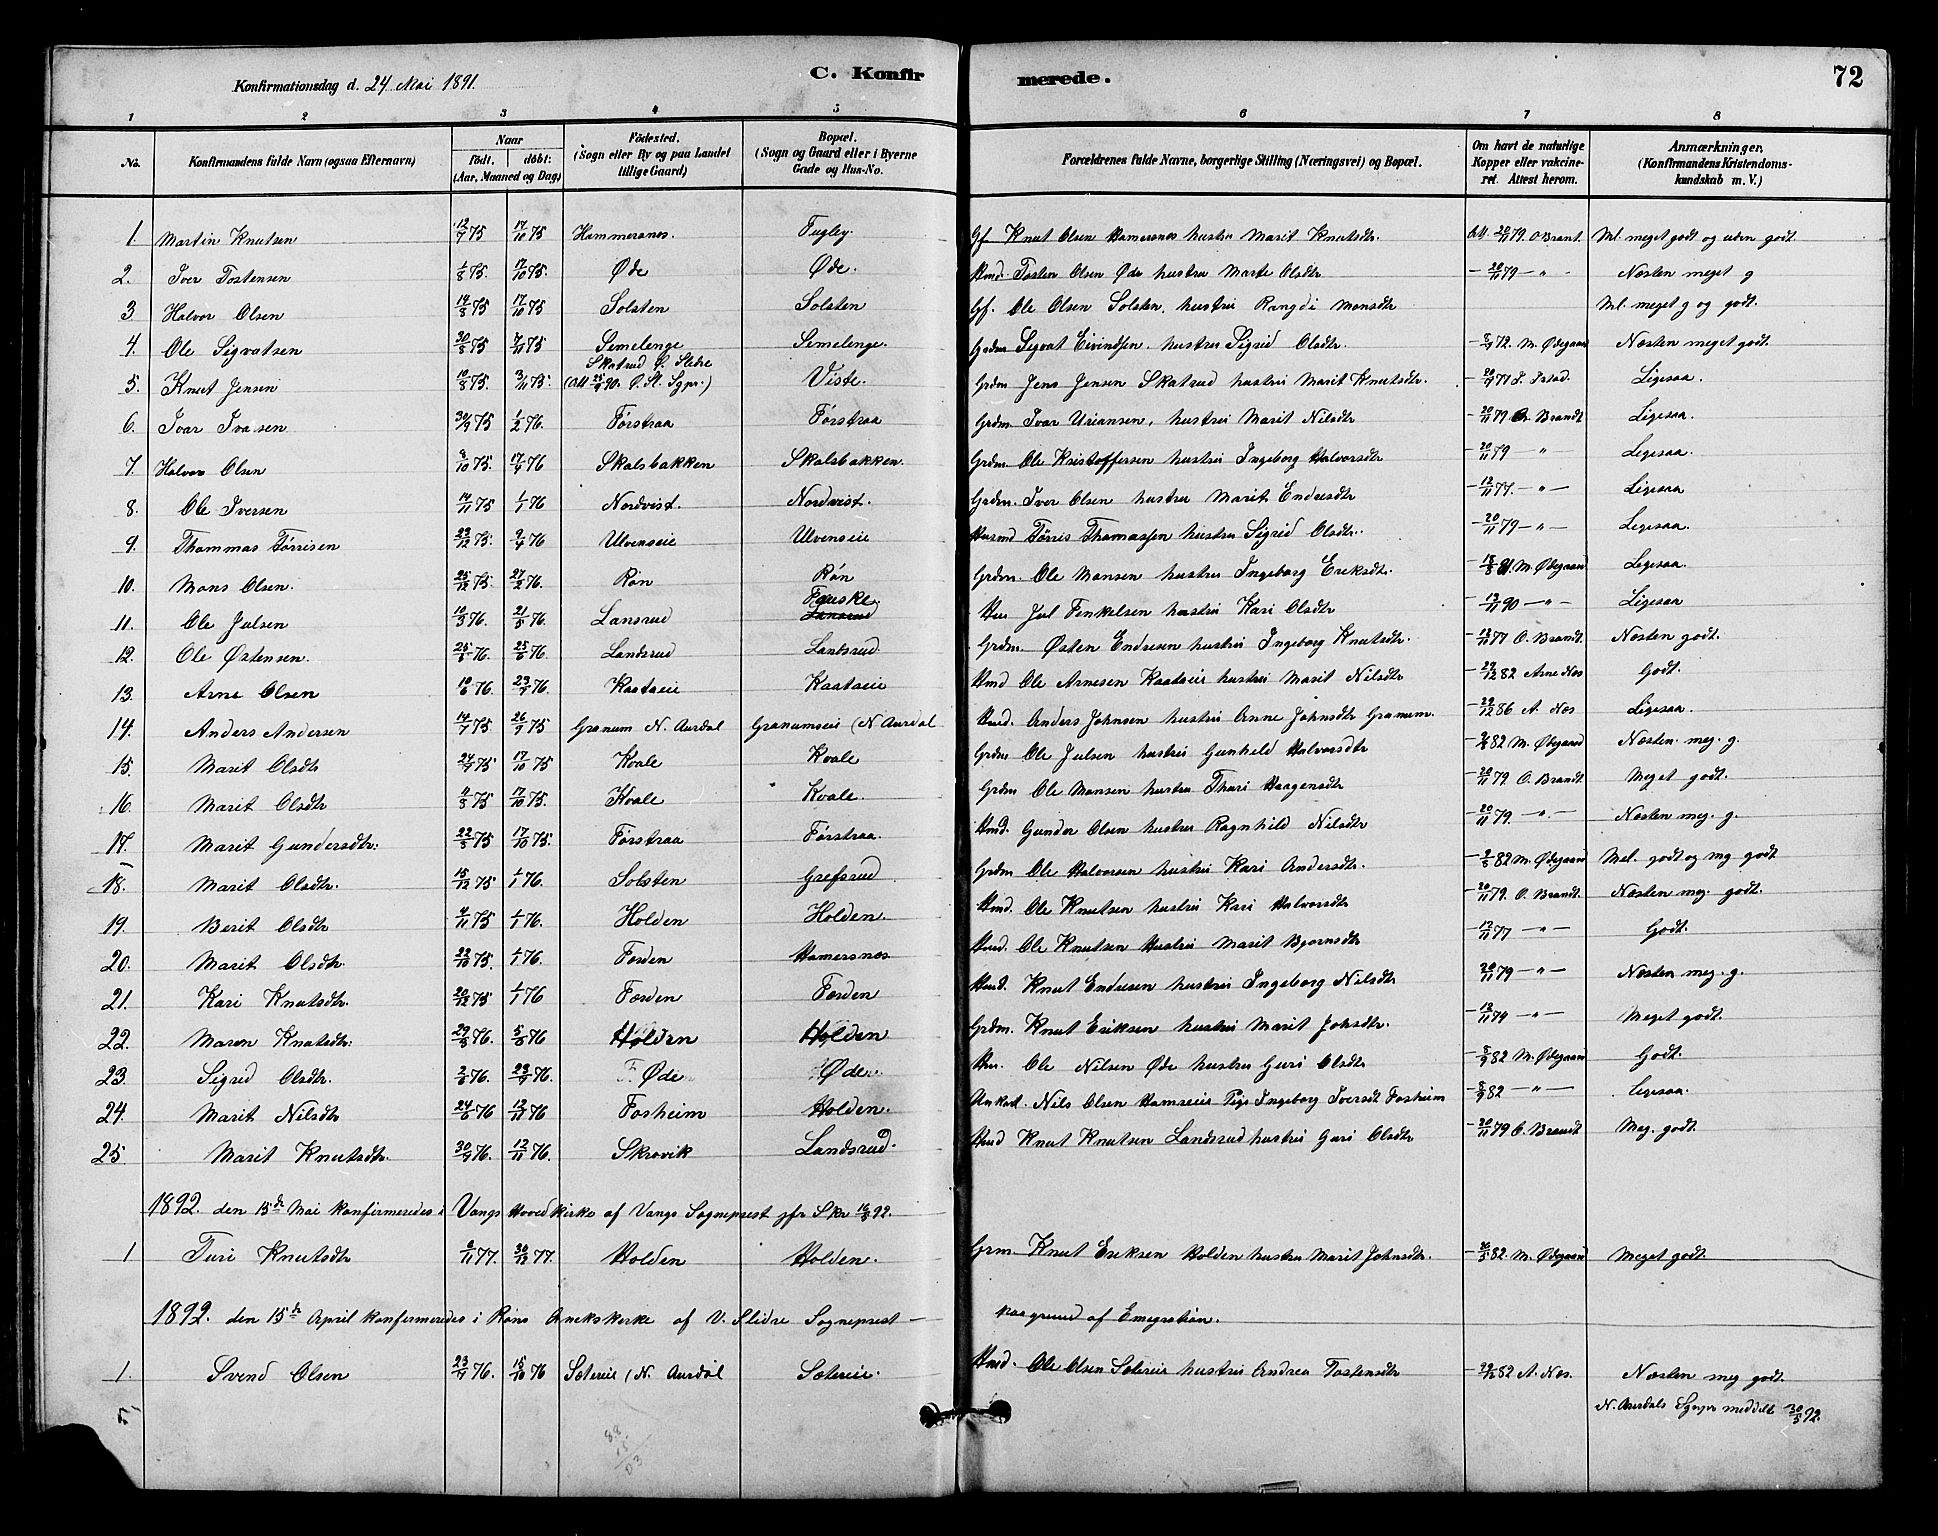 Konfirmationsdag d. 24 Mai 1891. C. Konfirmerede. 72
1 2 3 4 5 6 7 8
No. Konfirmandens fulde Navn (ogsaa Efternavn) Naar Födt. döbt: (Aar, Maaned og Dag) Födested. (Sogn eller By og paa Landet tillige Gaard) Bopæl. (Sogn og Gaard eller i Byerne Gade og Hus-No. Forældrenes fulde Navne, borgerlige Stilling (Næringsvei) og Bopæl. Om havt de naturlige Kopper eller vakcineret. Attest herom. Anmærkninger, (Konfirmandens Kristendomskundskab m. V.)
1. Martin Knutsen 12/7 75 17/10 75 Hammersnes. Fugley Gf. Knut Olsen Hamersnes hustru Marit Knutsdtr. Att 20/11 79. O Brant. Ml. meget godt og uden godt.
2. Iver Tostensen 1/8 75. 17/10 75. Øde Øde. Hmd. Tosten Olsen Øde hustru Marte Olsdtr - 20/11 79 - " - Næsten meget g
3. Halvor Olsen 19/8 75 17/10 75 Solsten Solsten Gf. Ole Olsen Solsten, hustru Rangdi Monsdtr Ml. meget g og godt.
4. Ole Sigvatsen 30/8 75 7/11 75 Semelenge Semelenge. Grdm Sigvat Eivindsen. hustru Sigrid Olsdtr. M. Ødegaar Næsten meget godt.
Skatrud Ø. Slidre
5. Knut Jensen 10/8 75. 3/11 75. Viste Grdm Jens Jensen Skatrud hustru Marit Knutsdtr. Ligesaa.
6. Ivar Ivarsen 30/9 75 1/2 76. Førstraa Førstraa Grdm. Ivar Uriansen, hustru Marit Nilsdtr - 20/11 79 O. Brandt Ligesaa.
7. Halvor Olsen 8/10 75. 17/4 76 Skalsbakken Skalsbakken. Grdm. Ole Kristoffersen hustru Ingeborg Halvorsdtr - 20/11 79 " Ligesaa.
8. Ole Iversen 14/11 75 1/1 76 Nordvist. Nordvist. Grdm. Iver Olsen hustru Marit Endresdtr - 12/11 77. - " - Ligesaa
9. Thommas Tørrisen 23/12 75. 9/4 76 Ulvenseie Ulvenseie Husmd Tørris Thomassen hustru Sigrid Olsdtr. - 20/11 79 - " - Ligesaa.
10. Mons Olsen. 25/12 75. 27/2 76. Røn Røn Grdm. Ole Monsen hustru Ingeborg Eriksdtr. M. Ødegaard Ligesaa.
Fauske.
11. Ole Julsen 10/3 76. 21/5 76. Lansrud Lansrud Hus Jul Finkelsen hustru Kari Olsdtr - 13/11 90 - " - Ligesaa
12. Ole Østensen. 25/6 76. Landsrud Landsrud. Grdm. Østen Endresen hustru Ingeborg Knutsdtr. - 12/11 77 O. Brandt. Næsten godt.
13. Arne Olsen 10/6 76. 23/7 76. Kaataeie Kaataeie Hmd Ole Arnesen Kaataeie hustru Marit Nilsdtr - 29/12 82 Arne Næs Godt.
14. Anders Andersen 14/7 75 26/9 75 Granum N. Aurdal Granumseie (N Aurdal Hmd. Anders Johnsen hustru Anne Johnsdtr Granum. - 29/12 86 A. Næs Ligesaa.
15. Marit Olsdtr 24/7 75 17/10 75 Kvale Kvale Grdm Ole Julsen hustru Gunhild Halvorsdtr M. Ødegaard Næsten. meg. g.
16. Marit Olsdtr 11/8 75 17/10 75. Kvale Kvale. Grdm Ole Monsen hustru Thuri Haagensdtr - 20/11 79. O. Brandt Meget godt.
17. Marit Gundersdtr: 22/8 75 17/10 75. Førstraa Førstraa. Hmd. Gunder Olsen hustru Ragnhild Nilsdtr - 20/11 79. - " - Næsten meg. g.
18. Marit Olsdtr. 15/12 75 1/1 76. Solsten Grefsrud Grdm Ole Halvorsen hustru Kari Andersdtr. M. Ødegaard Mel. godt og mg godt
19. Berit Olsdtr 4/11 75 1/1 76. Holden Holden. Hmd. Ole Knutsen hustru Kari Halvorsdtr - 20/11 79. O. Brandt. Næsten meg. godt.
20. Marit Olsdtr. 22/10 75. 1/1 76. Førden Hamersnes Hmd. Ole Knutsen Hustru Marit Bjørnsdtr - 12/11 77 - " - Godt.
21. Kari Knutsdtr. 20/12 75 1/1 76 Førden Førden Hmd. Knut Endresen hustru Ingeborg Nilsdtr - 20/11 79 - " - Næsten meg. g.
22. Maren Knutsdtr: Holden Holden Grdm. Knut Eriksen hustru Marit Johsdtr. - " - Meget godt.
23. Sigrid Olsdtr. Øde Øde. Hus. Ole Nilsen Øde hustru Guri Olsdtr - 8/9 82 M. Ødegaard Godt.
24. Marit Nilsdtr 24/6 76 12/11 76 Fosheim Holden. Nils Olsen Hamseie Pige Ingeborg Iversdt Fosheim - 8/9 82 - " - Ligesaa.
25. Marit Knutsdtr. 30/9 76. 12/11 76. Skrovik Landsrud. Hmd Knut Knutsen Landsrud hustru Guri Olsdtr - 20/11 79 O. Brandt Meg. godt.
1892. den 15de Mai konfirmeredes i Vangs Hovedkirke af Vangs Sogneprest jfr Skr 92.
1 Turi Knutsdtr 77. 30/12 77. Holden Holden. Grm Knut Eriksen Holden hustru Marit Johnsdtr. M. Ødegaard Meget godt.
1892. den 15de April konfirmeredes i Røns Anekskirke af V. Slidre Sogneprest - paa grund af Emegration.
1. Svend Olsen 23/7 76. 15/10 76 Sætereie (N. Aurdal Sætereie. Hmd. Ole Olsen Sætereie hustru Andrea Tostensdtr - 29/12 82 A. Næs. Næsten meg godt.
N. Aurdals Sgnpr meddelt 30/5 92.